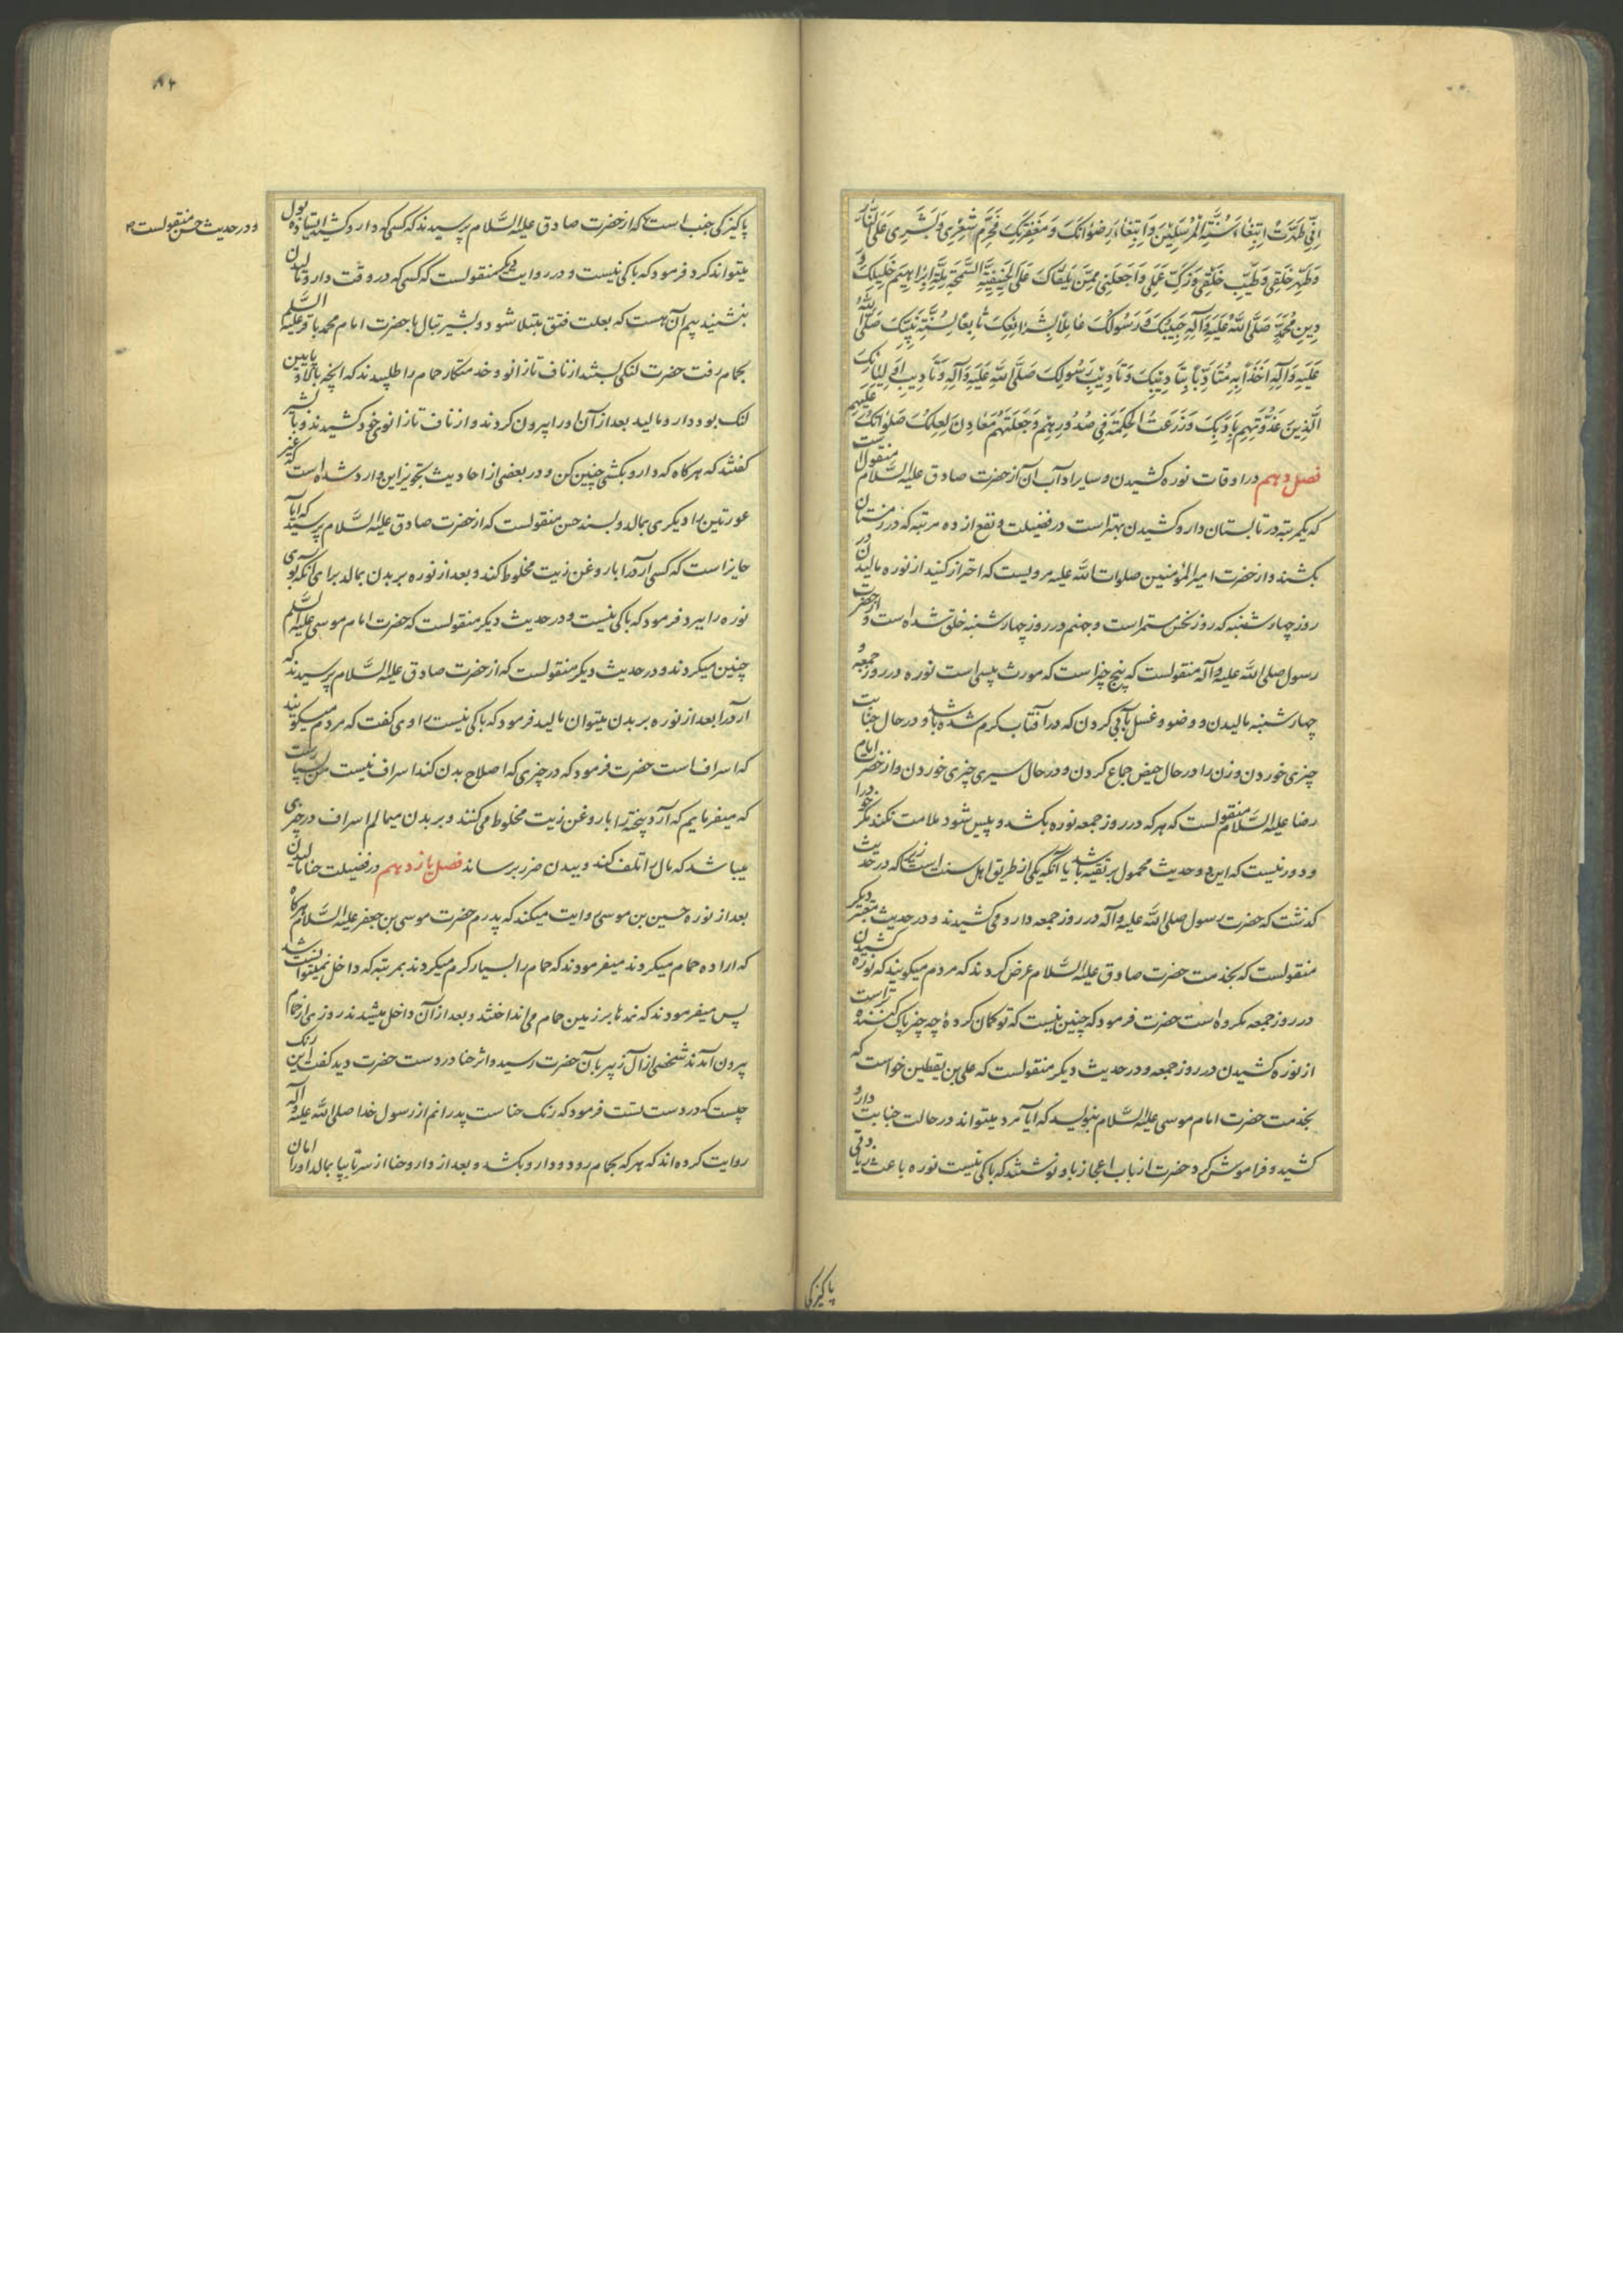 اِنّی طَهَّرتُ اِبتِغاءَ سُنَّةِ المُرسَلینَ وَابتِغاءَ رِضوانِکَ وَ مَغفِرَتِکَ فَحَرِّم شَعری وَ بَشَری عَلَی النّارِ
وَ طَهِّر خَلقی وَ طَیِّب خُلقی وَ زَکِّ عَمَلی وَ اجعَلنی مِمَّن یَلقاکَ عَلَی الحَنیفِیَّةِ السَّمحَةِ مِلَّةِ اِبراهیمَ خَلیلِکَ وَ
دینِ مُحَمَّدٍ صَلَّی اللّهُ عَلَیهِ وَ آلِهِ حَبیبِکَ وَ رَسولِکَ عامِلاً بِشَرائِعِکَ تابِعاً لِسُنَّةِ نَبِیِّکَ صَلَّی اللّهُ
عَلَیهِ وَ آلِهِ اخِذاً بِهِ مُتَأَدِّباً بِتَأدیبِکَ وَ تَأدیبِ رَسولِکَ صَلَّی اللّهُ عَلَیهِ وَ آلِهِ وَ تَأدیبِ اَولِیائِکَ
الَّذینَ غَذَوتَهُم بِاَدَبِکَ وَ زَرَعتَ الحِکمَةَ فی صُدورِهِم وَ جَعَلتَهُم مَعادِنَ لِعِلمِکَ صَلَواتُکَ عَلَیهِم
فصل دهم در اوقات نوره کشیدن و سایر اداب آن از حضرت صادق علیه السَّلام منقول است
که یکمرتبه در تابستان دارو کشیدن بهتر است در فضیلت و نفع از ده مرتبه که در زمستان
بکشند و از حضرت امیرالمؤمنین صلوات الله علیه مرویست که احتراز کنید از نوره مالیدن در
روز چهارشنبه که روز نحس مستمر است و جهنم در روز چهارشنبه خلق شده است و از حضرت
رسول صلی الله علیه و آله منقولست که پنج چیز است که مورث پیسی است نوره در روز جمعه و
چهارشنبه مالیدن و وضو و غسل بآبی کردن که در آفتاب کرم شده باشد و در حال جنابت
چیزی خوردن و زن را در حال حیض جماع کردن و در حال سیری چیزی خوردن و از حضرت امام
رضا علیه السَّلام منقولست که هر که در روز جمعه نوره بکشد و پیس شود ملامت نکند مکر خود را
و دور نیست که این دو حدیث محمول بر تقیه باشد یا آنکه یکی از طریق اهل سنت است زیرا که در حدیث
کذشت که حضرت رسول صلی الله علیه و آله در روز جمعه دارو می کشیدند و در حدیث معتبر دیکر
منقولست که بخدمت حضرت صادق علیه السَّلام عرض کردند که مردم میکویند که نوره کشیدن
در روز جمعه مکروه است حضرت فرمود که چنین نیست که تو کمان کردهٔ چه چیز پاک کننده تر است
از نوره کشیدن در روز جمعه و در حدیث دیکر منقولست که علی بن یقطین خواست که
بخدمت حضرت امام موسی علیه السَّلام بنویسد که آیا مرد میتواند در حالت جنابت دارو
کشید و فراموش کرد حضرت از باب اعجاز باو نوشتند که باکی نیست نوره باعث زیادتی
پاکیزکی
۸۲
پاکیزکی جنب است که از حضرت صادق علیه السَّلام پرسیدند که کسی که دارو کشد ایستاده بول
و در حدیث حسن منقولست
میتواند کرد فرمود که باکی نیست و در روایت دیکر منقولست که کسی که در وقت دارو مالیدن
بنشیند بیم آن هست که بعلت فتق مبتلا شود و بشیر تبال با حضرت امام محمد باقر علیه السَّلم
بحمام رفت حضرت لنکی بستند از ناف تا زانو و خدمتکار حمام را طلبیدند که آنچه بالا و پایین
لنک بود دارو مالید بعد از آن او را بیرون کردند و از ناف تا زانوی خود کشیدند و با بشیر
کفتند که هر کاه که دارو بکشی چنین کن و در بعضی از احادیث تجویز این وارد شده است که غیر
عورتین را دیکری بمالد و بسند حسن منقولست که از حضرت صادق علیه السَّلام پرسیدند که آیا
جایز است که کسی آرد را با روغن زیت مخلوط کند و بعد از نوره بر بدن بمالد برای آنکه بوی
نوره را ببرد فرمود که باکی نیست و در حدیث دیکر منقولست که حضرت امام موسی علیه السَّلم
چنین میکردند و در حدیث دیکر منقولست که از حضرت صادق علیه السَّلام پرسیدند که
آرد را بعد از نوره بر بدن میتوان مالید فرمود که باکی نیست راوی کفت که مردم میکویند
که اسراف است حضرت فرمود که در چیزی که اصلاح بدن کند اسراف نیست من بسیار است
که میفرمایم که آرد پخته را با روغن زیت مخلوط می کنند و بر بدن میمالم اسراف در چیزی
میباشد که مال را تلف کند و ببدن ضرر برساند فصل یازدهم در فضیلت حنا مالیدن
بعد از نوره حسین بن موسی روایت میکند که پدرم حضرت موسی بن جعفر علیه السَّلام هر کاه
که اراده حمام میکردند میفرمودند که حمام را بسیار کرم میکردند بمرتبه که داخل نمیتوانست شد
پس میفرمودند که نمدها بر زمین حمام می انداختند و بعد از آن داخل میشدند روزی از حمام
بیرون آمدند شخصی از آل زبیر بآن حضرت رسید و اثر حنا در دست حضرت دید کفت این رنک
چیست که در دست تست فرمود که رنک حناست پدرانم از رسول خدا صلی الله علیه و آله
روایت کرده اند که هر که بحمام رود و دارو بکشد و بعد از دارو حنا از سر تا بپا بمالد او را امان